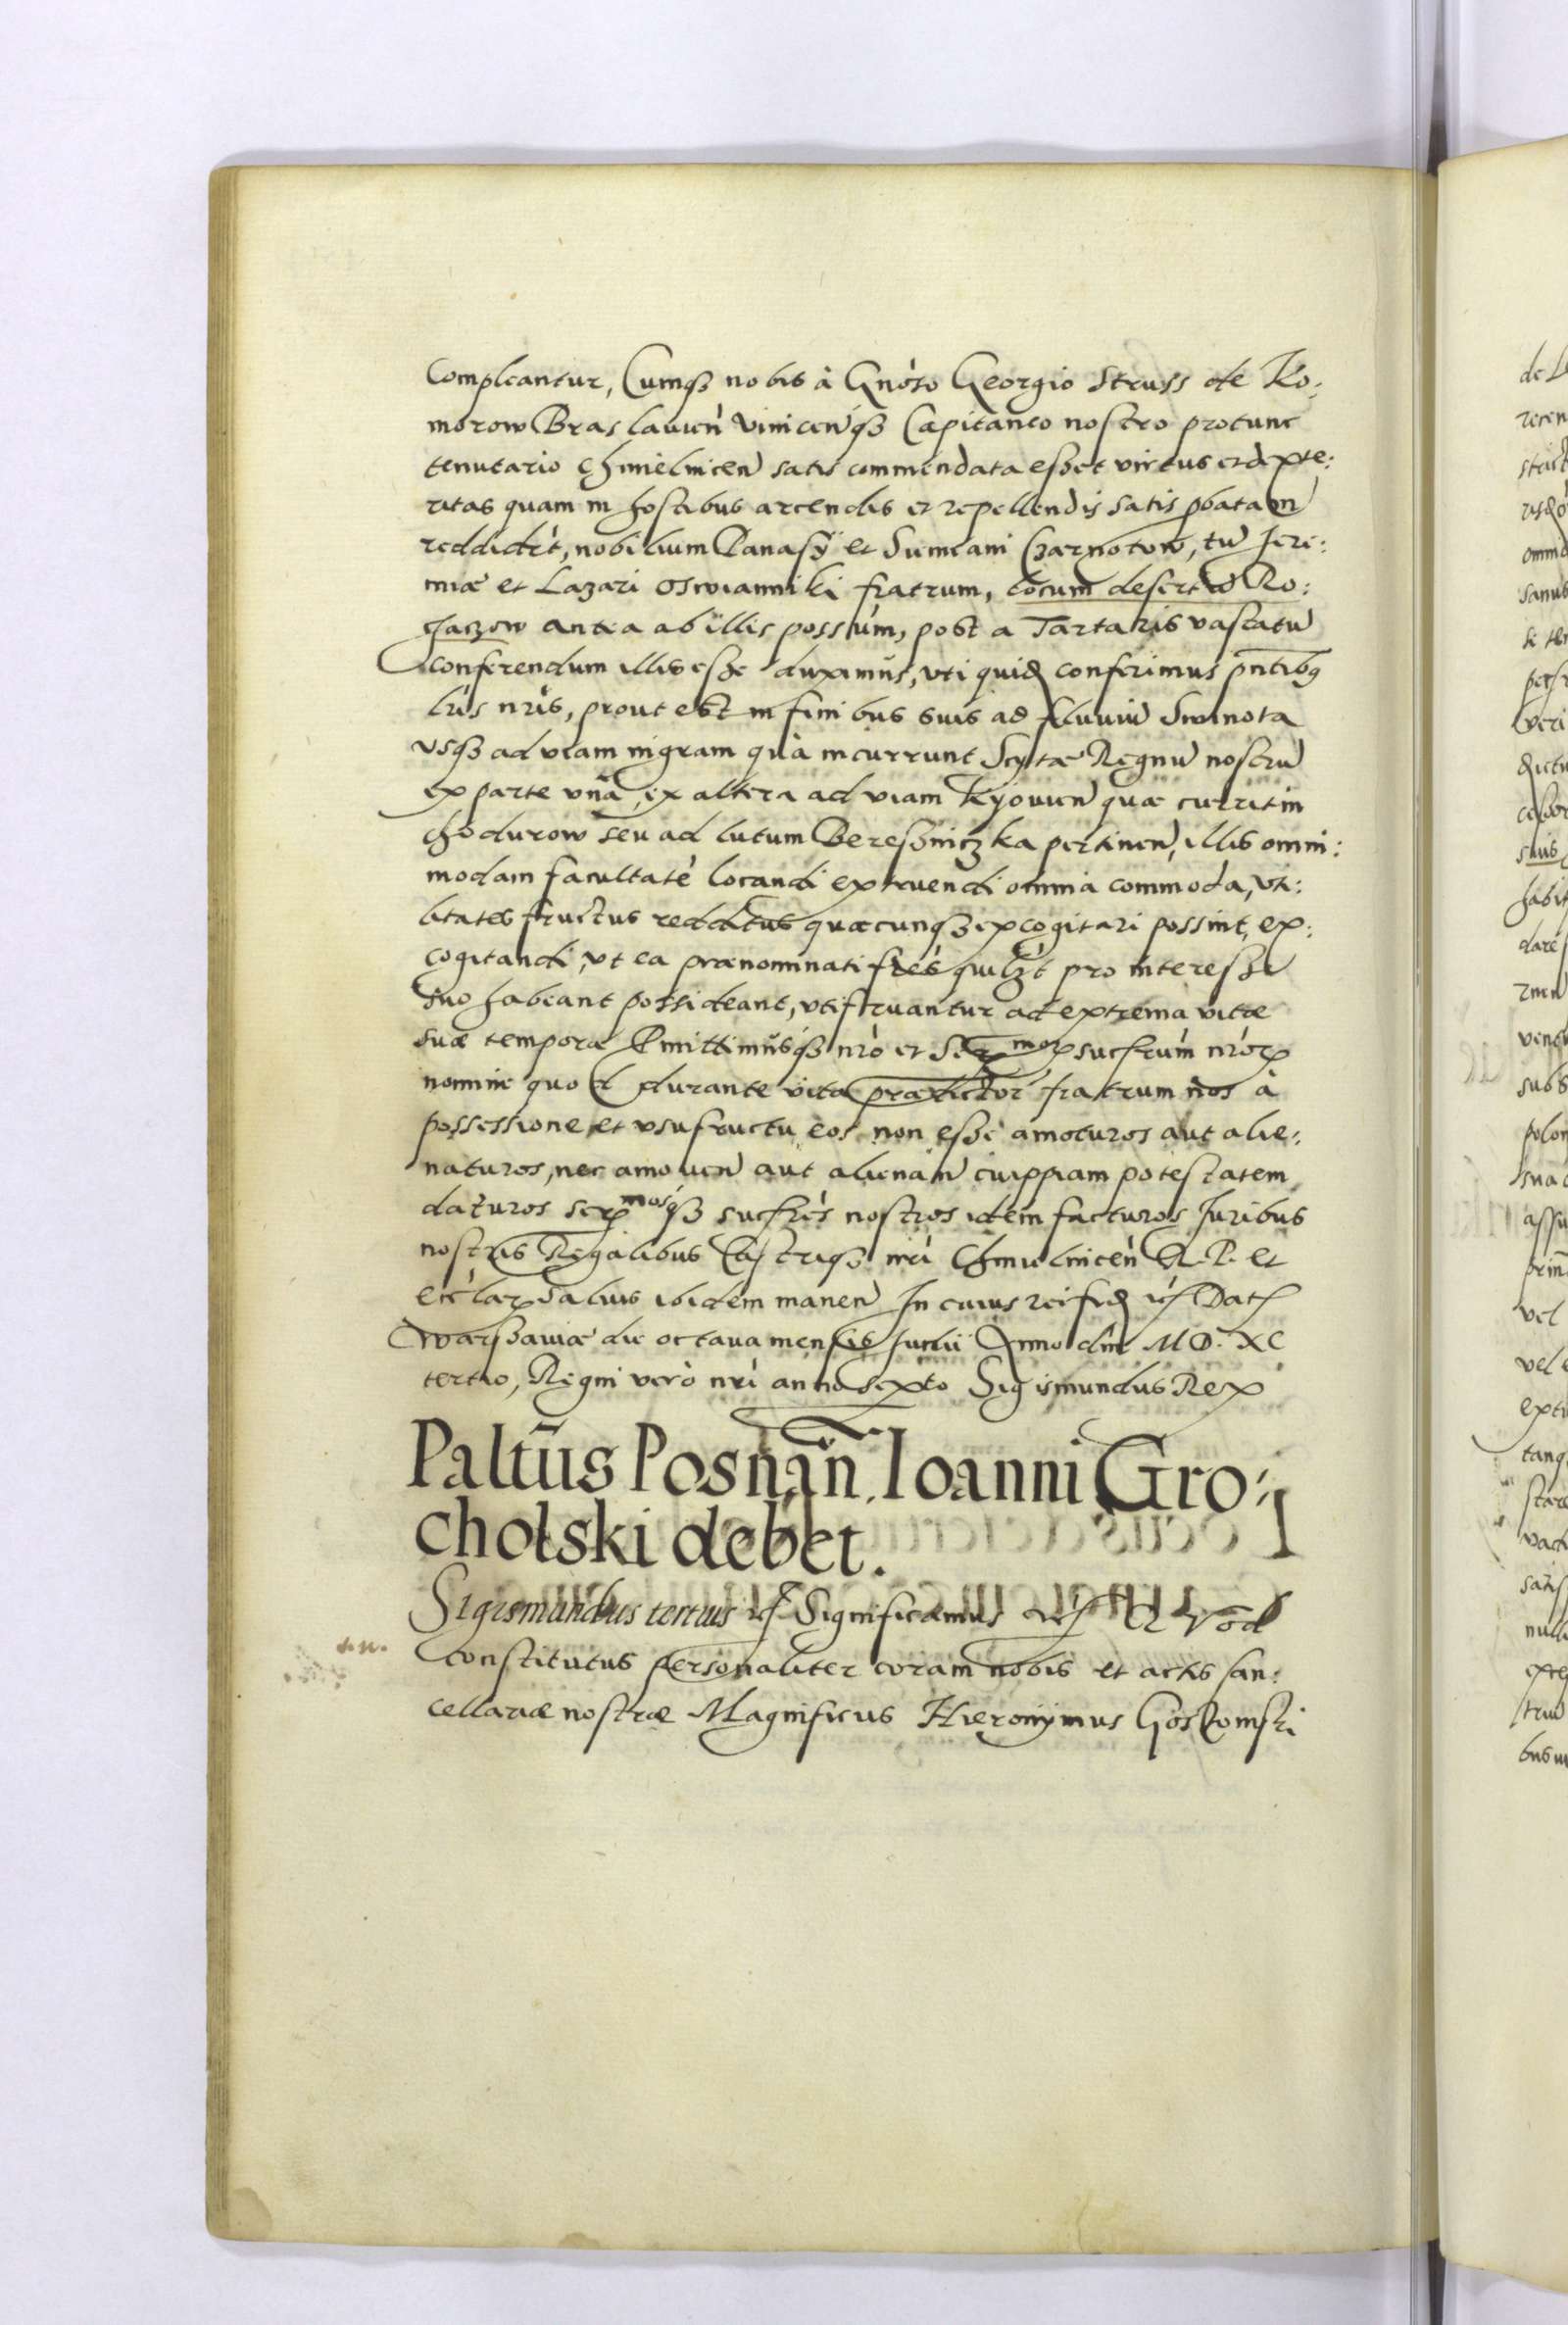 compleantur, Cumq3 nobis à Gnóso Georgio Struss de Ko:
morow Braslavien Vinicenq3 Capitaneo nostro protunc
tenutario Chmielnicen satis commendata esset virtus et dexte:
ritas quam in hostibus arcendis et repellendis satis pbatam
reddidèt, nobilium Panasÿ et Simeani Czarnotow, tũ Jere:
miæ et Lazari Oswianniki fratrum, locum desertũ Ro:
haczow antea ab illis possúm, post a Tartaris vastatũ
conferendum illis esse duximus, uti quid conferimus pntibq
lris nris, prout est in finibus suis ad fluviũ Swinota
usq3 ad viam nigram quà incurrunt Scytæ Regnũ nostrũ
ex parte unã, ex altera ad viam Kijovien quæ currit in
Chodurow seu ad lutum Beresniczka pertinen, illis omni:
modam facultatè locandi extruendi omnia commoda, uti:
litates fructus redditus quæcunq3 excogitari possint, ex:
cogitandi, ut ea prænominati frés quilz't pro interesse
suo habeant possideant, utifruantur ad extrema vitæ
suæ tempora Pmittimusq3 nrò et Sermor sucfrum nrór
nomine quod durante vita prædictor fratrum nos à
possessione et usufructu eos non esse amoturos aut alie:
naturos, nec amoven aut alienan cuippiam potestatem
daturos sermosq3 sucfrès nostros idem facturos Juribus
nostris Regalibus Castriq3 nri Chmielnicen R. P. et
ecclar salvis ibidem manen In cuius rei fid rf Dat
Warssaviæ die octava mensis Junii Anno dni M D. XC
tertio, Regni verò nri anno sexto Sigismundus Rex
Paltũs Posnãn. Ioanni Gro:
cholski debet.
Sigismundus tertius rf Significamus rf Qvod
constitutus personaliter coram nobis et actis Can:
cellariæ nostræ Magnificus Hieronymus Gostomski